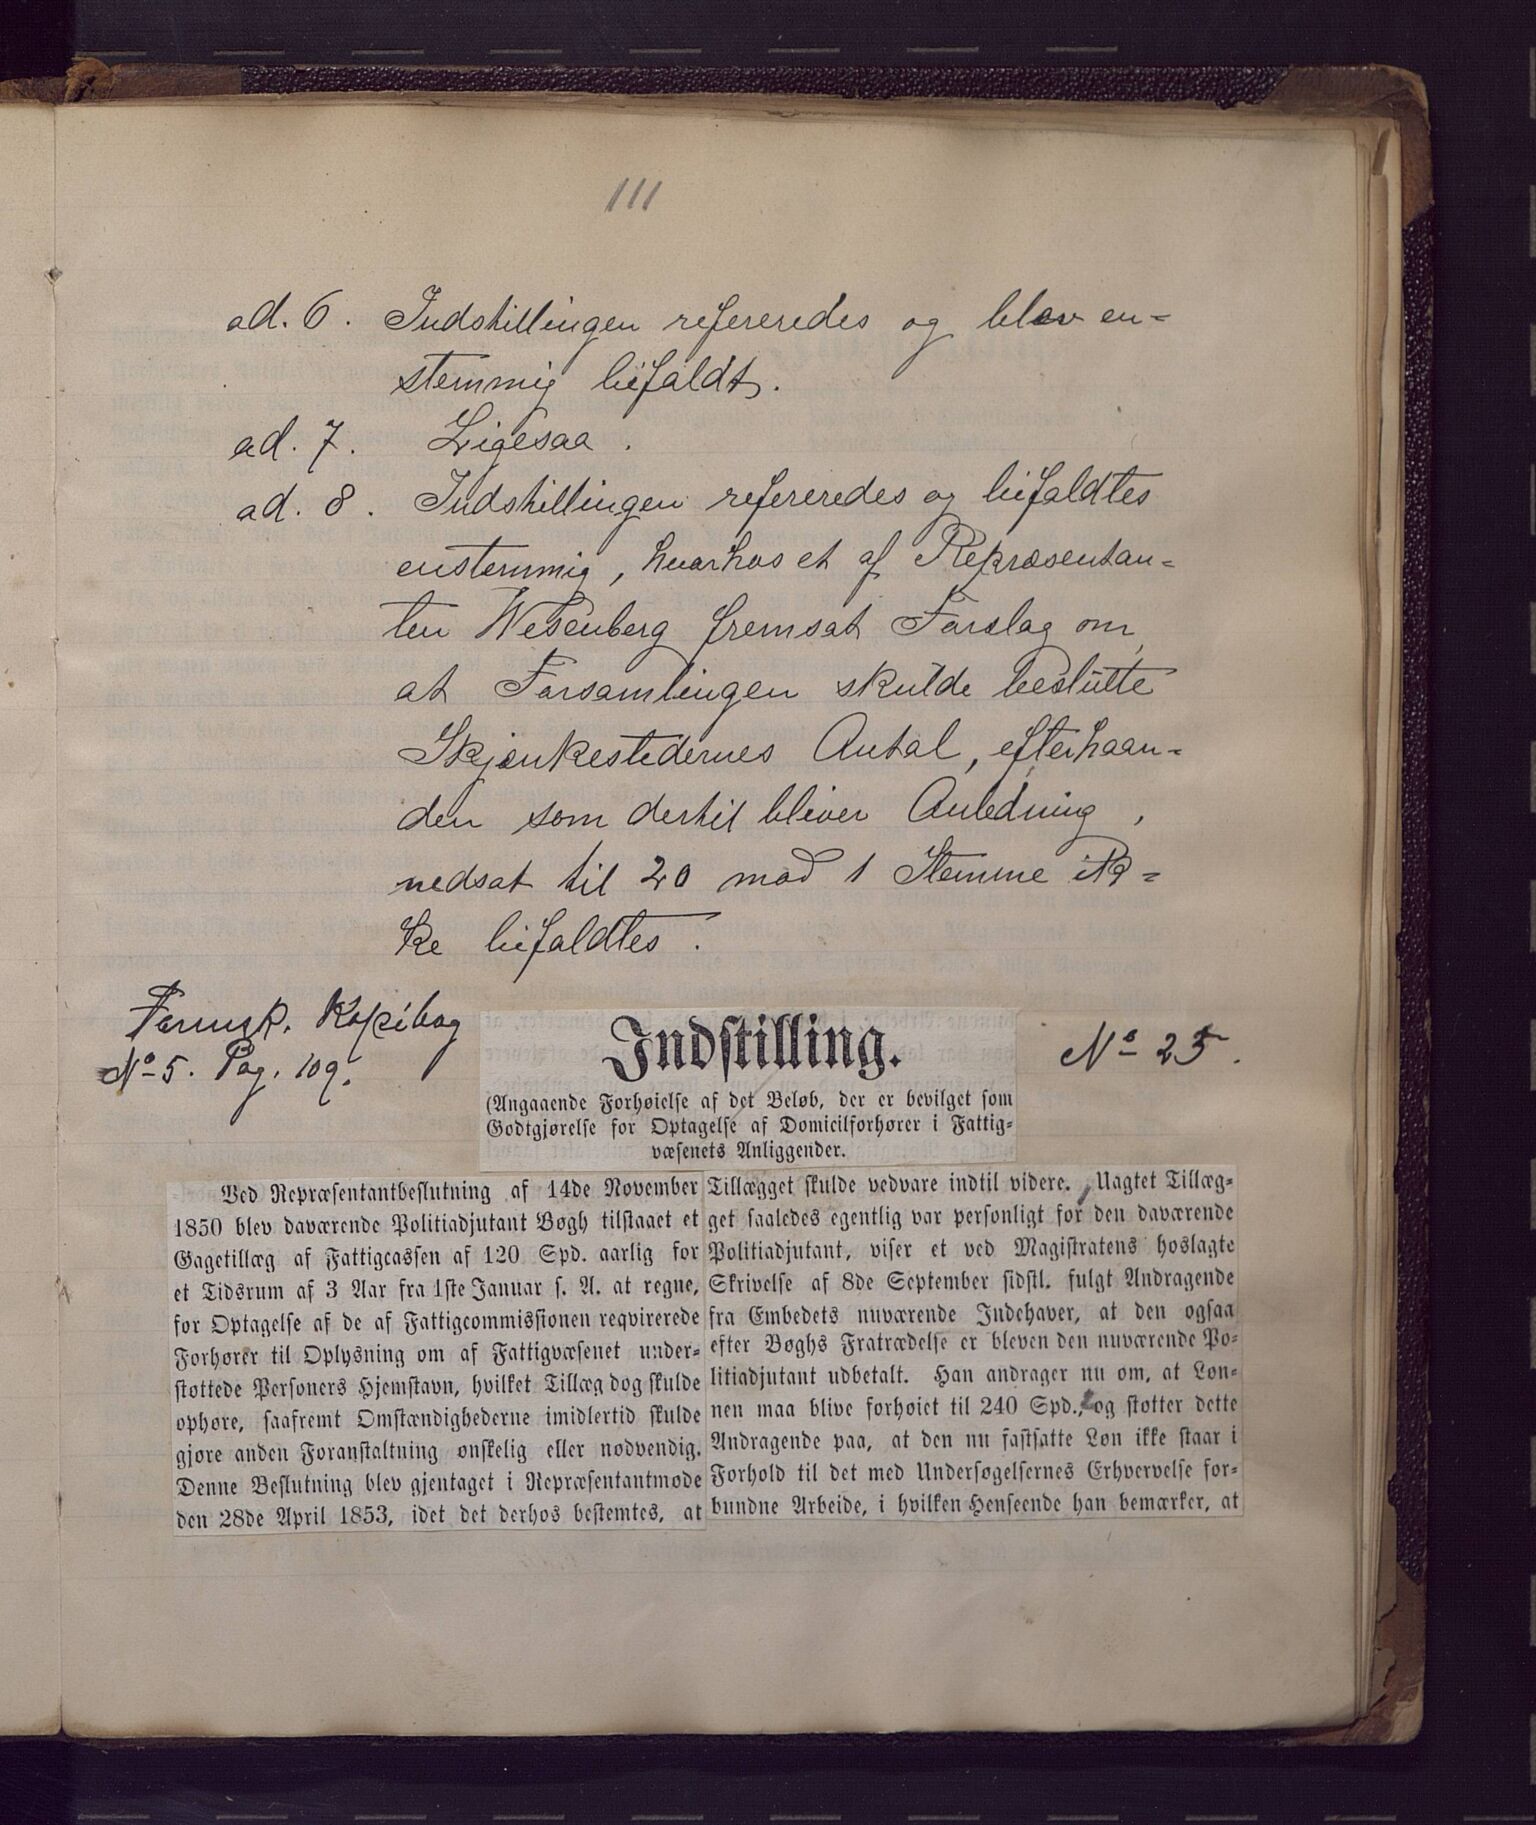 111
ad. 6. Indstillingen refereredes og blev en=
stemmig bifaldt.
ad. 7. Ligesaa.
ad. 8. Indstillingen refereredes og bifaldtes
enstemmig, hvorhos et af Repræsentan=
ten Wesenberg fremsat Forslag om,
at Forsamlingen skulde beslutte
Skjænkestedernes Antal, efterhaan=
den som dertil bliver Anledning,
nedsat til 20 mod 1 Stemme ik=
ke bifaldtes.
Formsk. Kopibog
No 5. Pag. 109.
Indstilling.
No 25.
(Angaaende Forhøielse af det Beløb, der er bevilget som
Godtgjørelse for Optagelse af Domicilforhører i Fattig=
væsenets Anliggender.
Ved Repræsentantbeslutning af 14de November
1850 blev daværende Politiadjutant Bøgh tilstaaet et
Gagetillæg af Fattigcassen af 120 Spd. aarlig for
et Tidsrum af 3 Aar fra 1ste Januar s. A. at regne,
for Optagelse af de af Fattigcommissionen reqvirerede
Forhører til Oplysning om af Fattigvæsenet under=
støttede Personers Hjemstavn, hvilket Tillæg dog skulde
ophøre, saafremt Omstændighederne imidlertid skulde
gjøre anden Foranstaltning ønskelig eller nødvendig.
Denne Beslutning blev gjentaget i Repræsentantmøde
den 28de April 1853, idet det derhos bestemtes, at
Tillægget skulde vedvare indtil videre. Uagtet Tillæg=
get saaledes egentlig var personligt for den daværende
Politiadjutant, viser et ved Magistratens hoslagte
Skrivelse af 8de September sidstl. fulgt Andragende
fra Embedets nuværende Indehaver, at den ogsaa
efter Bøghs Fratrædelse er bleven den nuværende Po=
litiadjutant udbetalt. Han andrager nu om, at Løn=
nen maa blive forhøiet til 240 Spd., og støtter dette
Andragende paa, at den nu fastsatte Løn ikke staar i
Forhold til det med Undersøgelsernes Erhvervelse for=
bundne Arbeide, i hvilken Henseende han bemærker, at